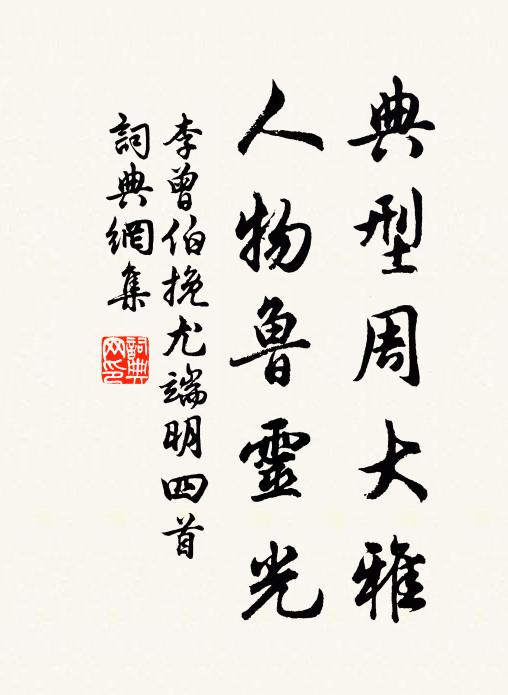 典型周大雅
人物魯靈光
李曾伯挽尤端明四首
詞典網集
詞典網印